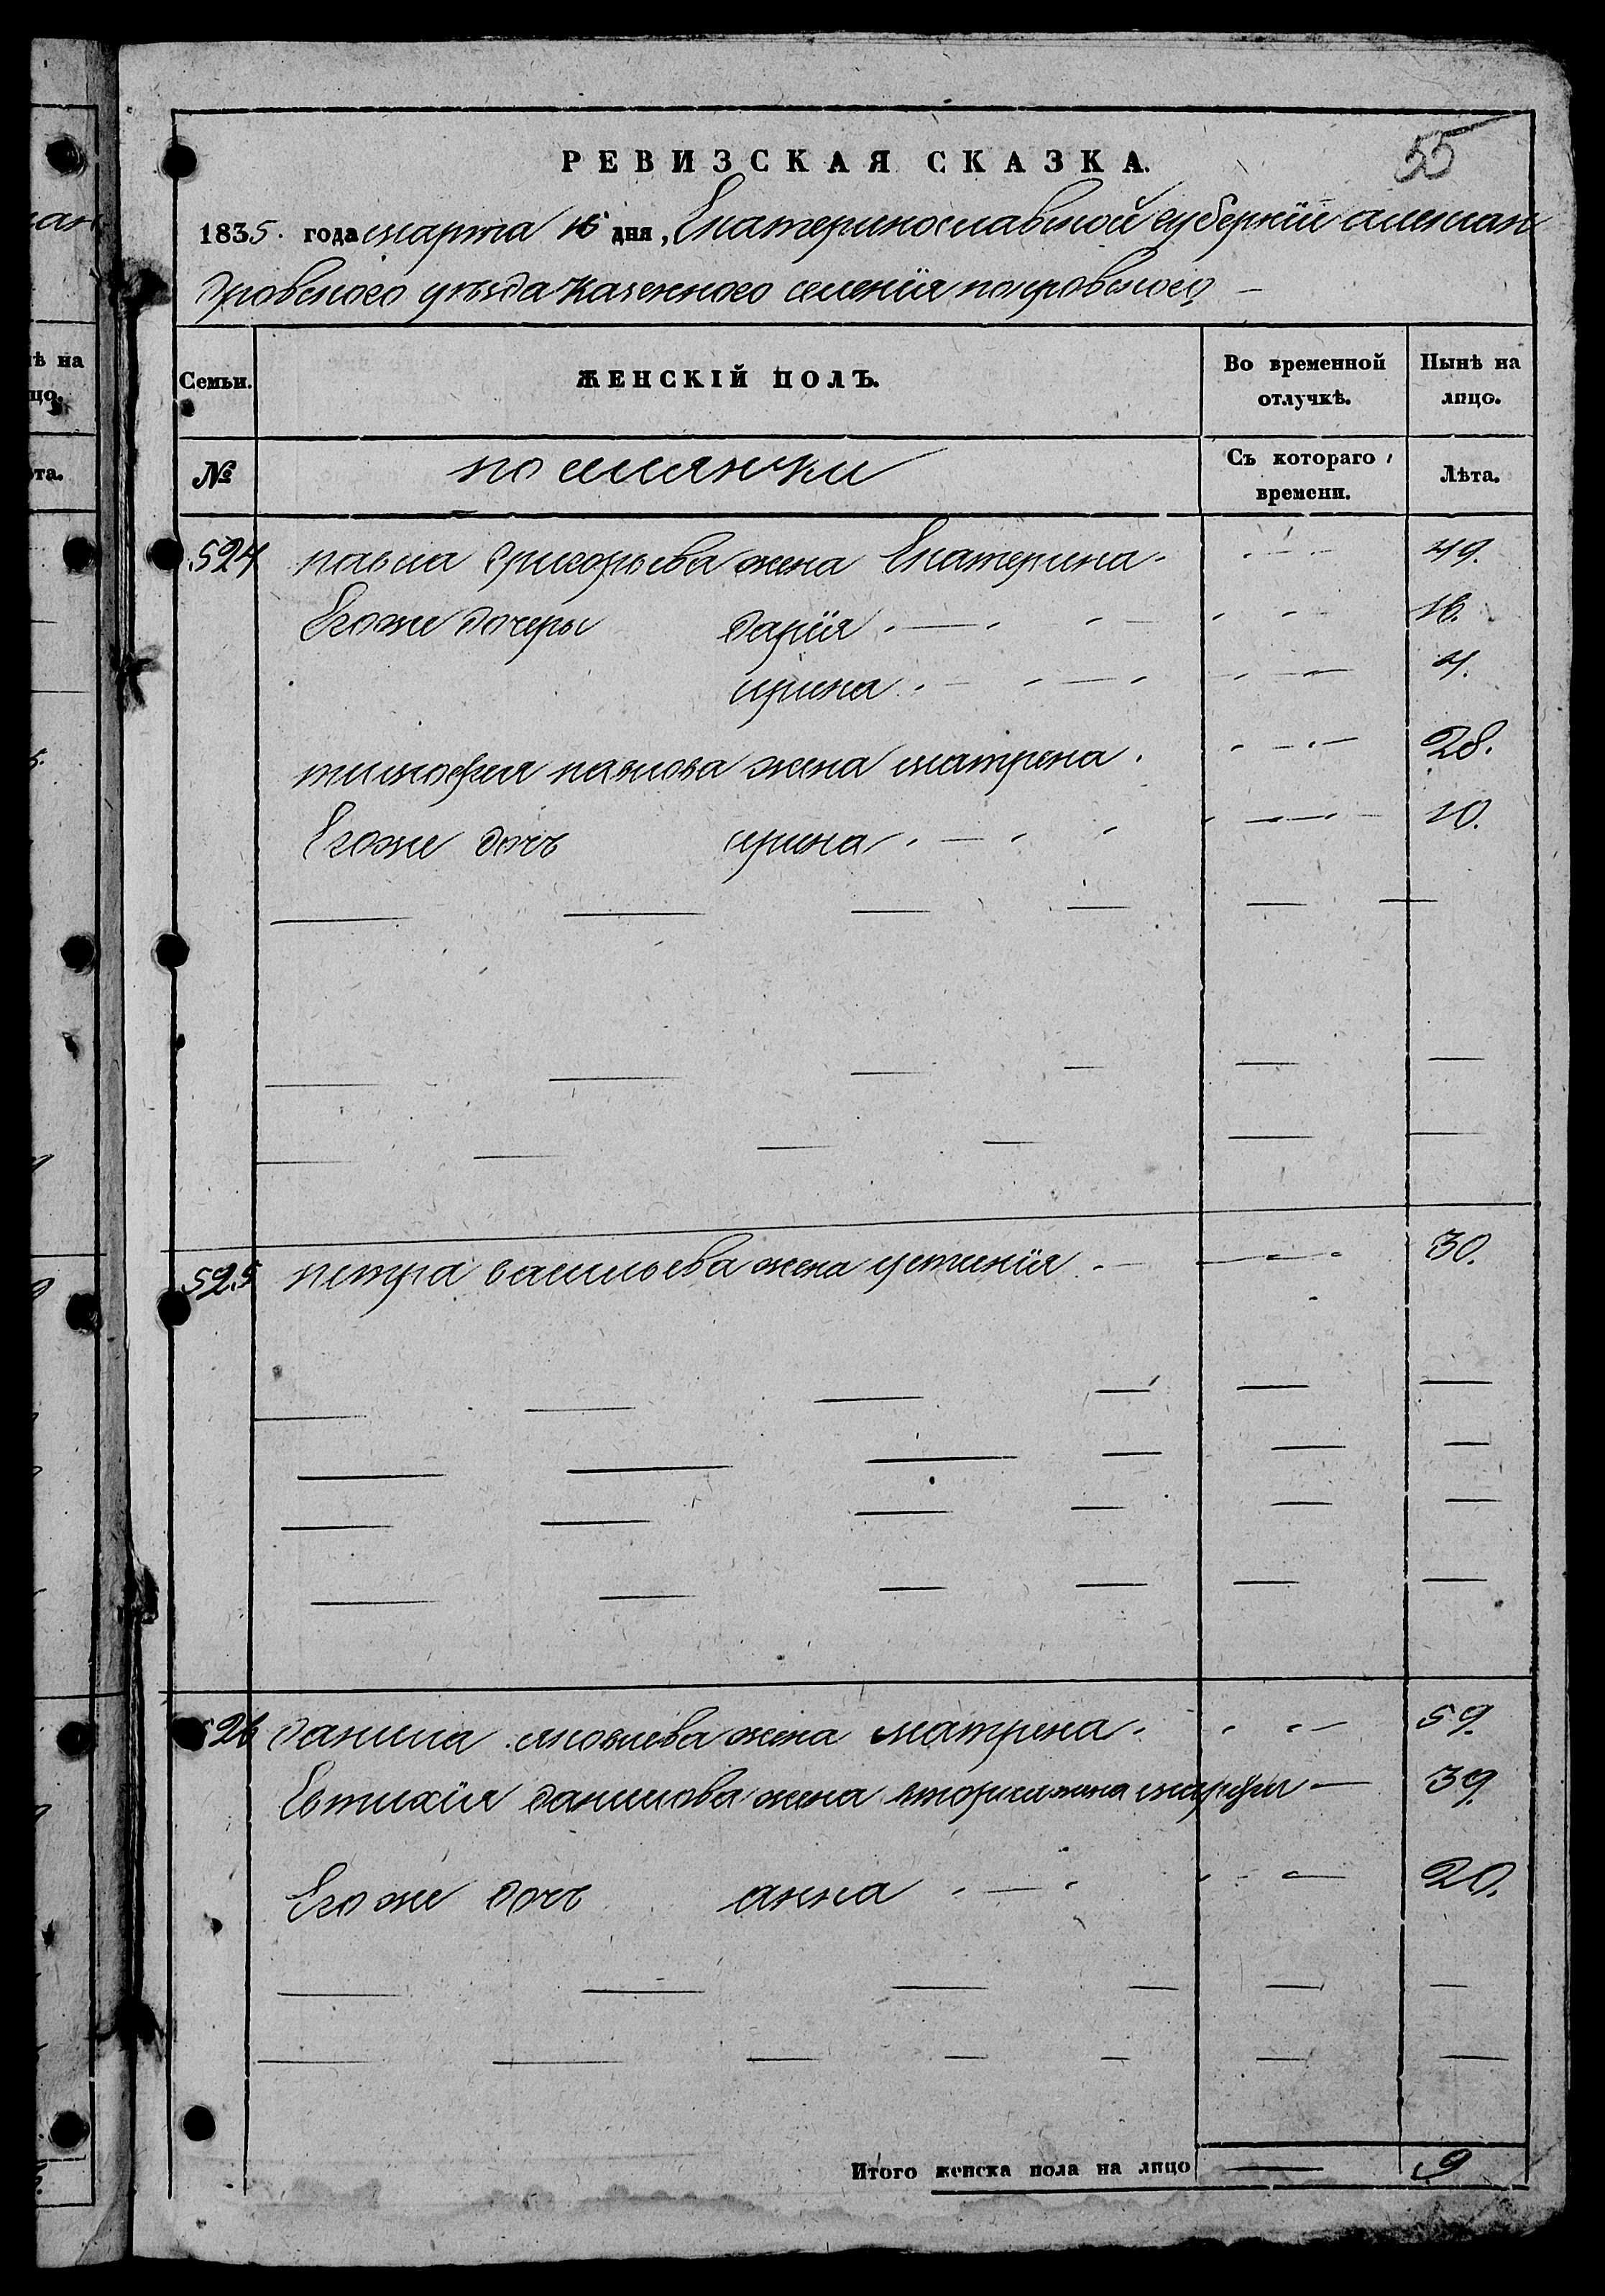 55
РЕВИЗСКАЯ СКАЗКА.
1835. года марта 16 дня, Екатеринославской губернїи алексан
дровского уѣзда казенного селенїя покровского
Семьи.
ЖЕНСКІЙ ПОЛЪ.
Во временной отлучкѣ.
Нынѣ на лицо.
№
поселянки
Съ котораго времени.
Лѣта.
524 павла григорьева жена Екатерина 49.
Егоже дочеры дарїя 16.
ирина 4.
тимофея павлова жена матрена 28.
Егоже дочь ирина 10.
525 петра васильева жена устинїя 30.
526 данила яковлева жена матрена 59.
Евтихїя данилова жена вторая жена 39.
Егоже дочь анна 20.
Итого женска пола на лицо 9